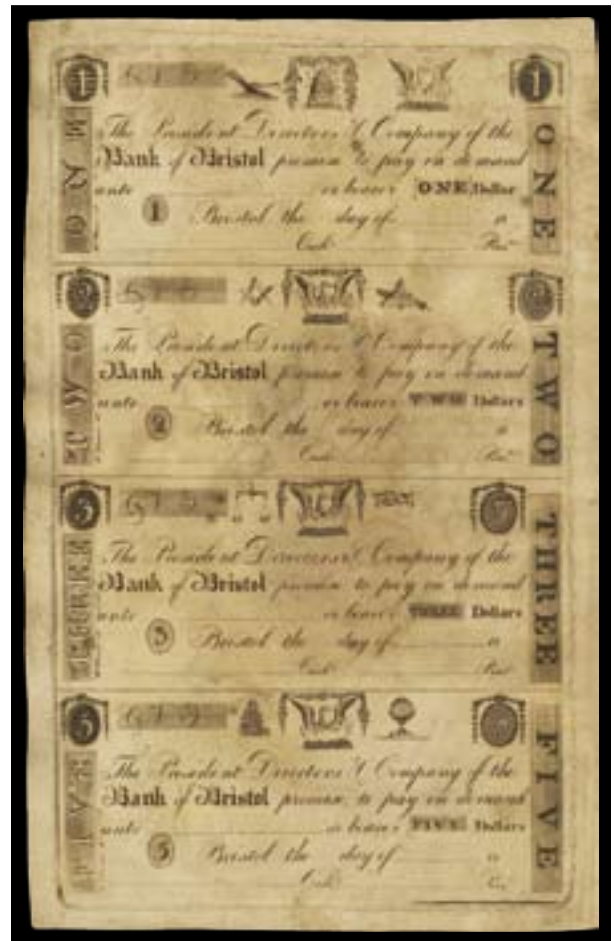 1 1
The President Directors & Company of the
Bank of Bristol promise to pay on demand
unto or bearer ONE Dollar
1 Bristol the day of
Cash.r Pres.t
ONE
ONE
2 2
The President Directors & Company of the
Bank of Bristol promise to pay on demand
unto or bearer TWO Dollars
2 Bristol the day of
Cash.r Pres.t
TWO
TWO
3
The President Directors & Company of the
Bank of Bristol promise to pay on demand
unto or bearer THREE Dollars
3 Bristol the day of
Cash.r Pres.t
THREE
THREE
5
The President Directors & Company of the
Bank of Bristol promise to pay on demand
unto or bearer FIVE Dollars
5 Bristol the day of
Cash.r
FIVE
FIVE